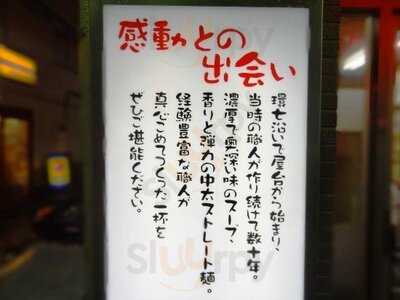 感動との
出会い
環七沿いで屋台から始まり、
当時の職人が作り続けて数十年。
濃厚で奥深い味のスープ、
香りと弾力の中太ストレート麺。
経験豊富な職人が
真心こめてつくった一杯を
ぜひご堪能ください。
Sluurpy